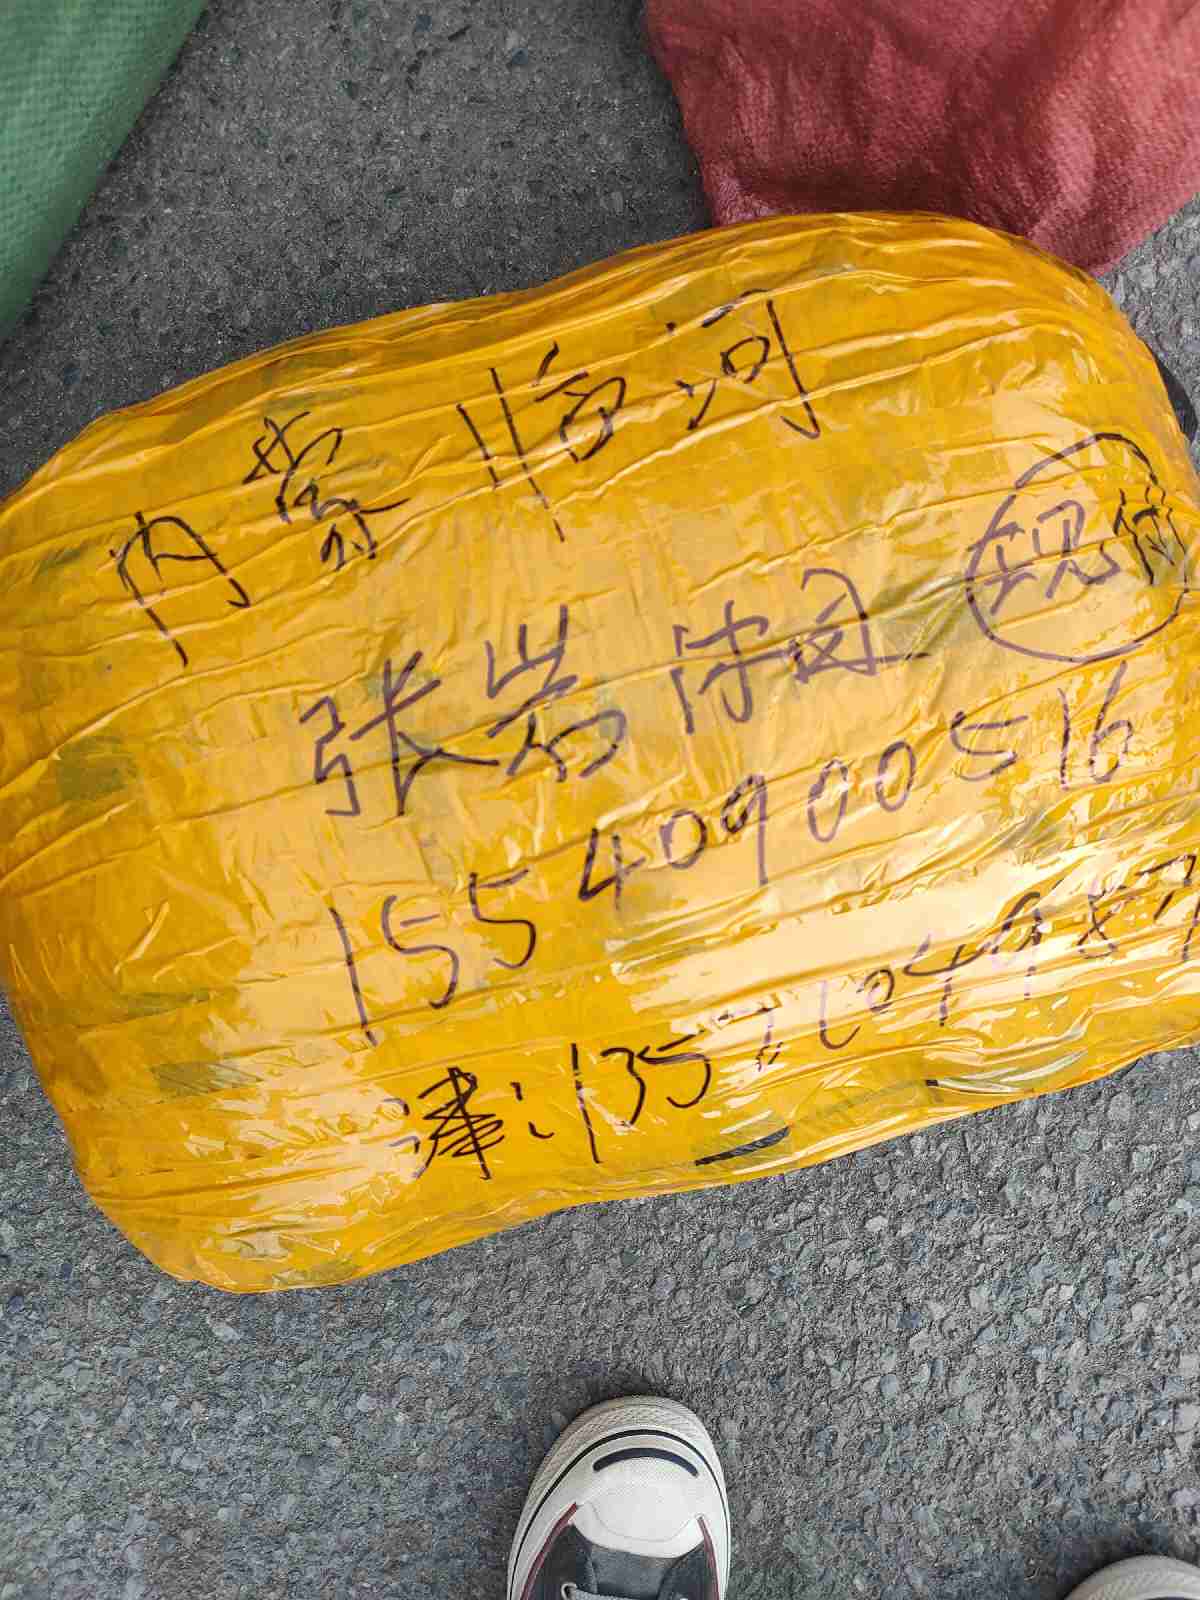 内蒙临河
张岩 现付
15540900516
津：1357204987